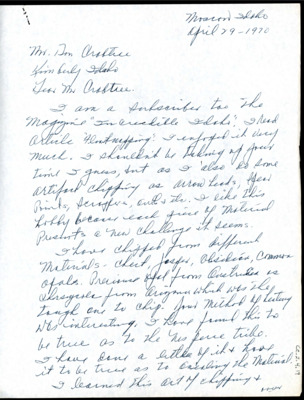 Moscow Idaho
April 29-1970
Mr. Don Crabtree
Kimberly Idaho
Dear Mr Crabtree.
I am a subscriber too The
Magazine "Incredible Idaho". I read
Article "Flintknapping". I enjoyed it very
Much. I shouldn't be taking up your
time I guess, but as I also do some
artifact chipping as arrow heads, Spear
Points, Scrapers, cults etc. I like this
hobby because each piece of Material
Presents a new challenge it seems.
I have chipped from different
Materials - Chert, Jasper, Obsidian, Common
opals. Precious Opal from Australia as
from Oregon which was very
tough one to chip. Your Method of heating
was interesting. I have found this to
be true as to the Nez perce tribe.
I have done a little of it & have
it to be true as to the Material.
I learned this art of chipping &